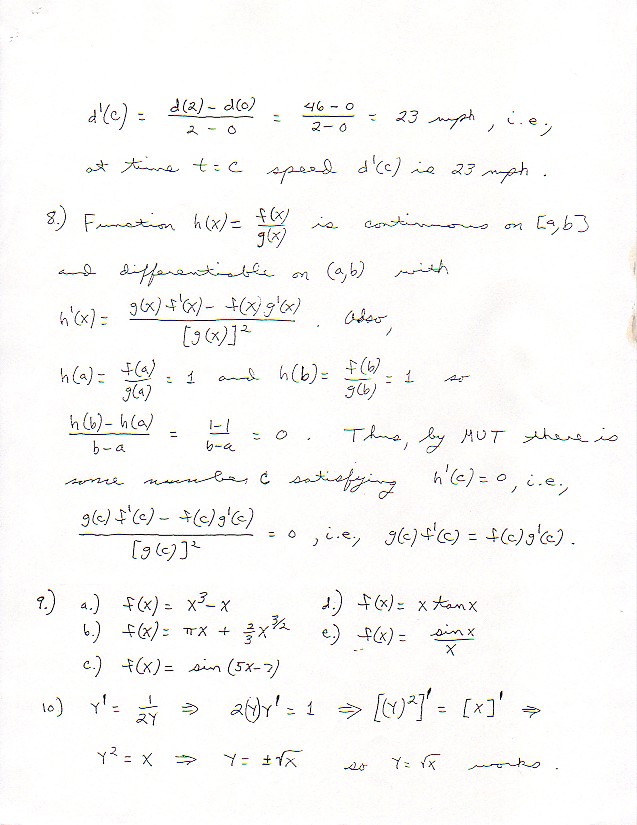 d'(c) = (d(2) - d(0))/(2 - 0) = (46 - 0)/(2 - 0) = 23 mph, i.e.,
at time t = c speed d'(c) is 23 mph.
8.) Function h(x) = f(x)/g(x) is continuous on [a,b]
and differentiable on (a,b) with
h'(x) = (g(x) f'(x) - f(x) g'(x))/[g(x)]². Also,
h(a) = f(a)/g(a) = 1 and h(b) = f(b)/g(b) = 1 so
(h(b) - h(a))/(b-a) = (1-1)/(b-a) = 0. Thus, by MVT there is
some number c satisfying h'(c) = 0, i.e.,
(g(c) f'(c) - f(c) g'(c))/[g(c)]² = 0, i.e., g(c) f'(c) = f(c) g'(c).
9.) a.) f(x) = x³ - x d.) f(x) = x tan x
b.) f(x) = πx + (2/3)x^(3/2) e.) f(x) = (sin x)/x
c.) f(x) = sin (5x-7)
10) Y' = 1/(2Y) ⇒ 2(Y)Y' = 1 ⇒ [(Y)²]' = [x]' ⇒
Y² = x ⇒ Y = ±√x so Y = √x works.